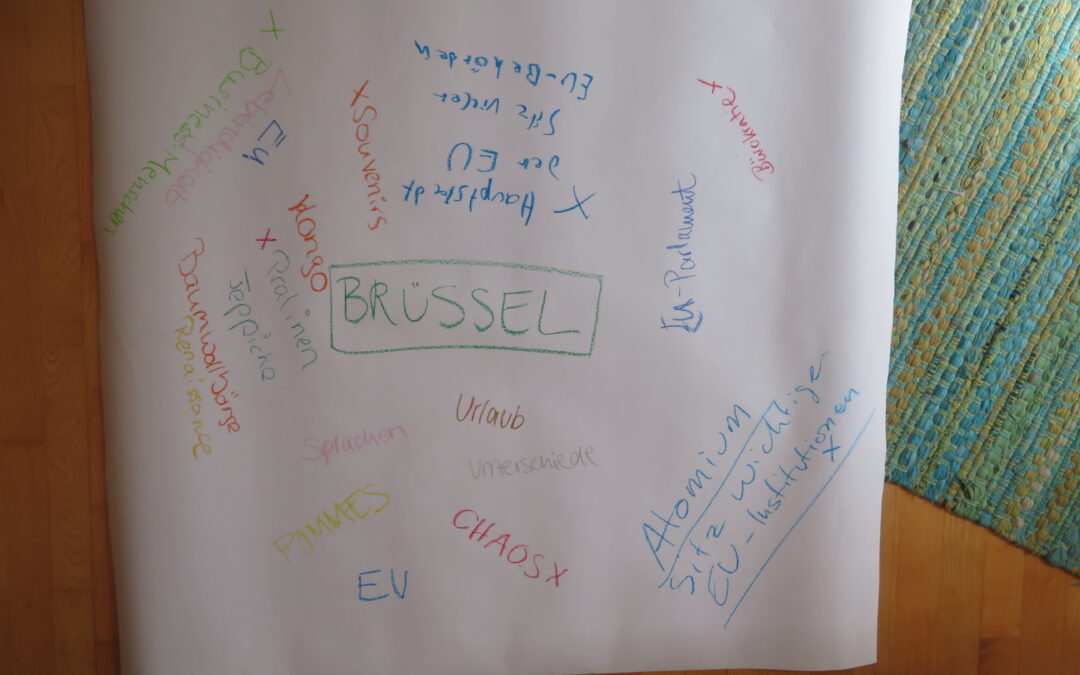 x Business-Menschen
Lebendigkeit
EU
x Souvenirs
Kongo
x Hauptstadt
der EU
Sitz vieler
EU-Behörden
Bürokratie x
EU-Parlament
x Pralinen
Teppiche
Baumwollbörse
Renaissance
BRÜSSEL
Urlaub
Sprachen
Unterschiede
POMMES
CHAOS x
EU
Atomium
Sitz wichtiger
EU-Institutionen
x